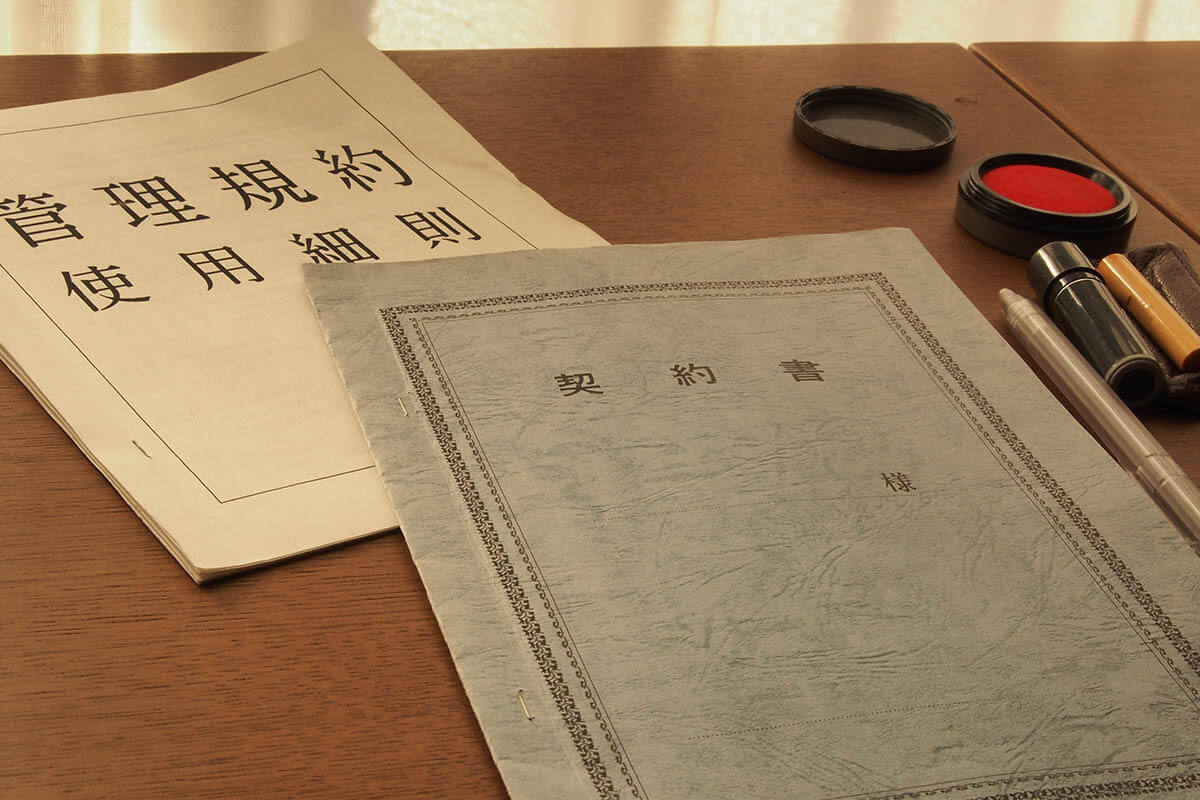 管理規約
使用細則
契約書
様